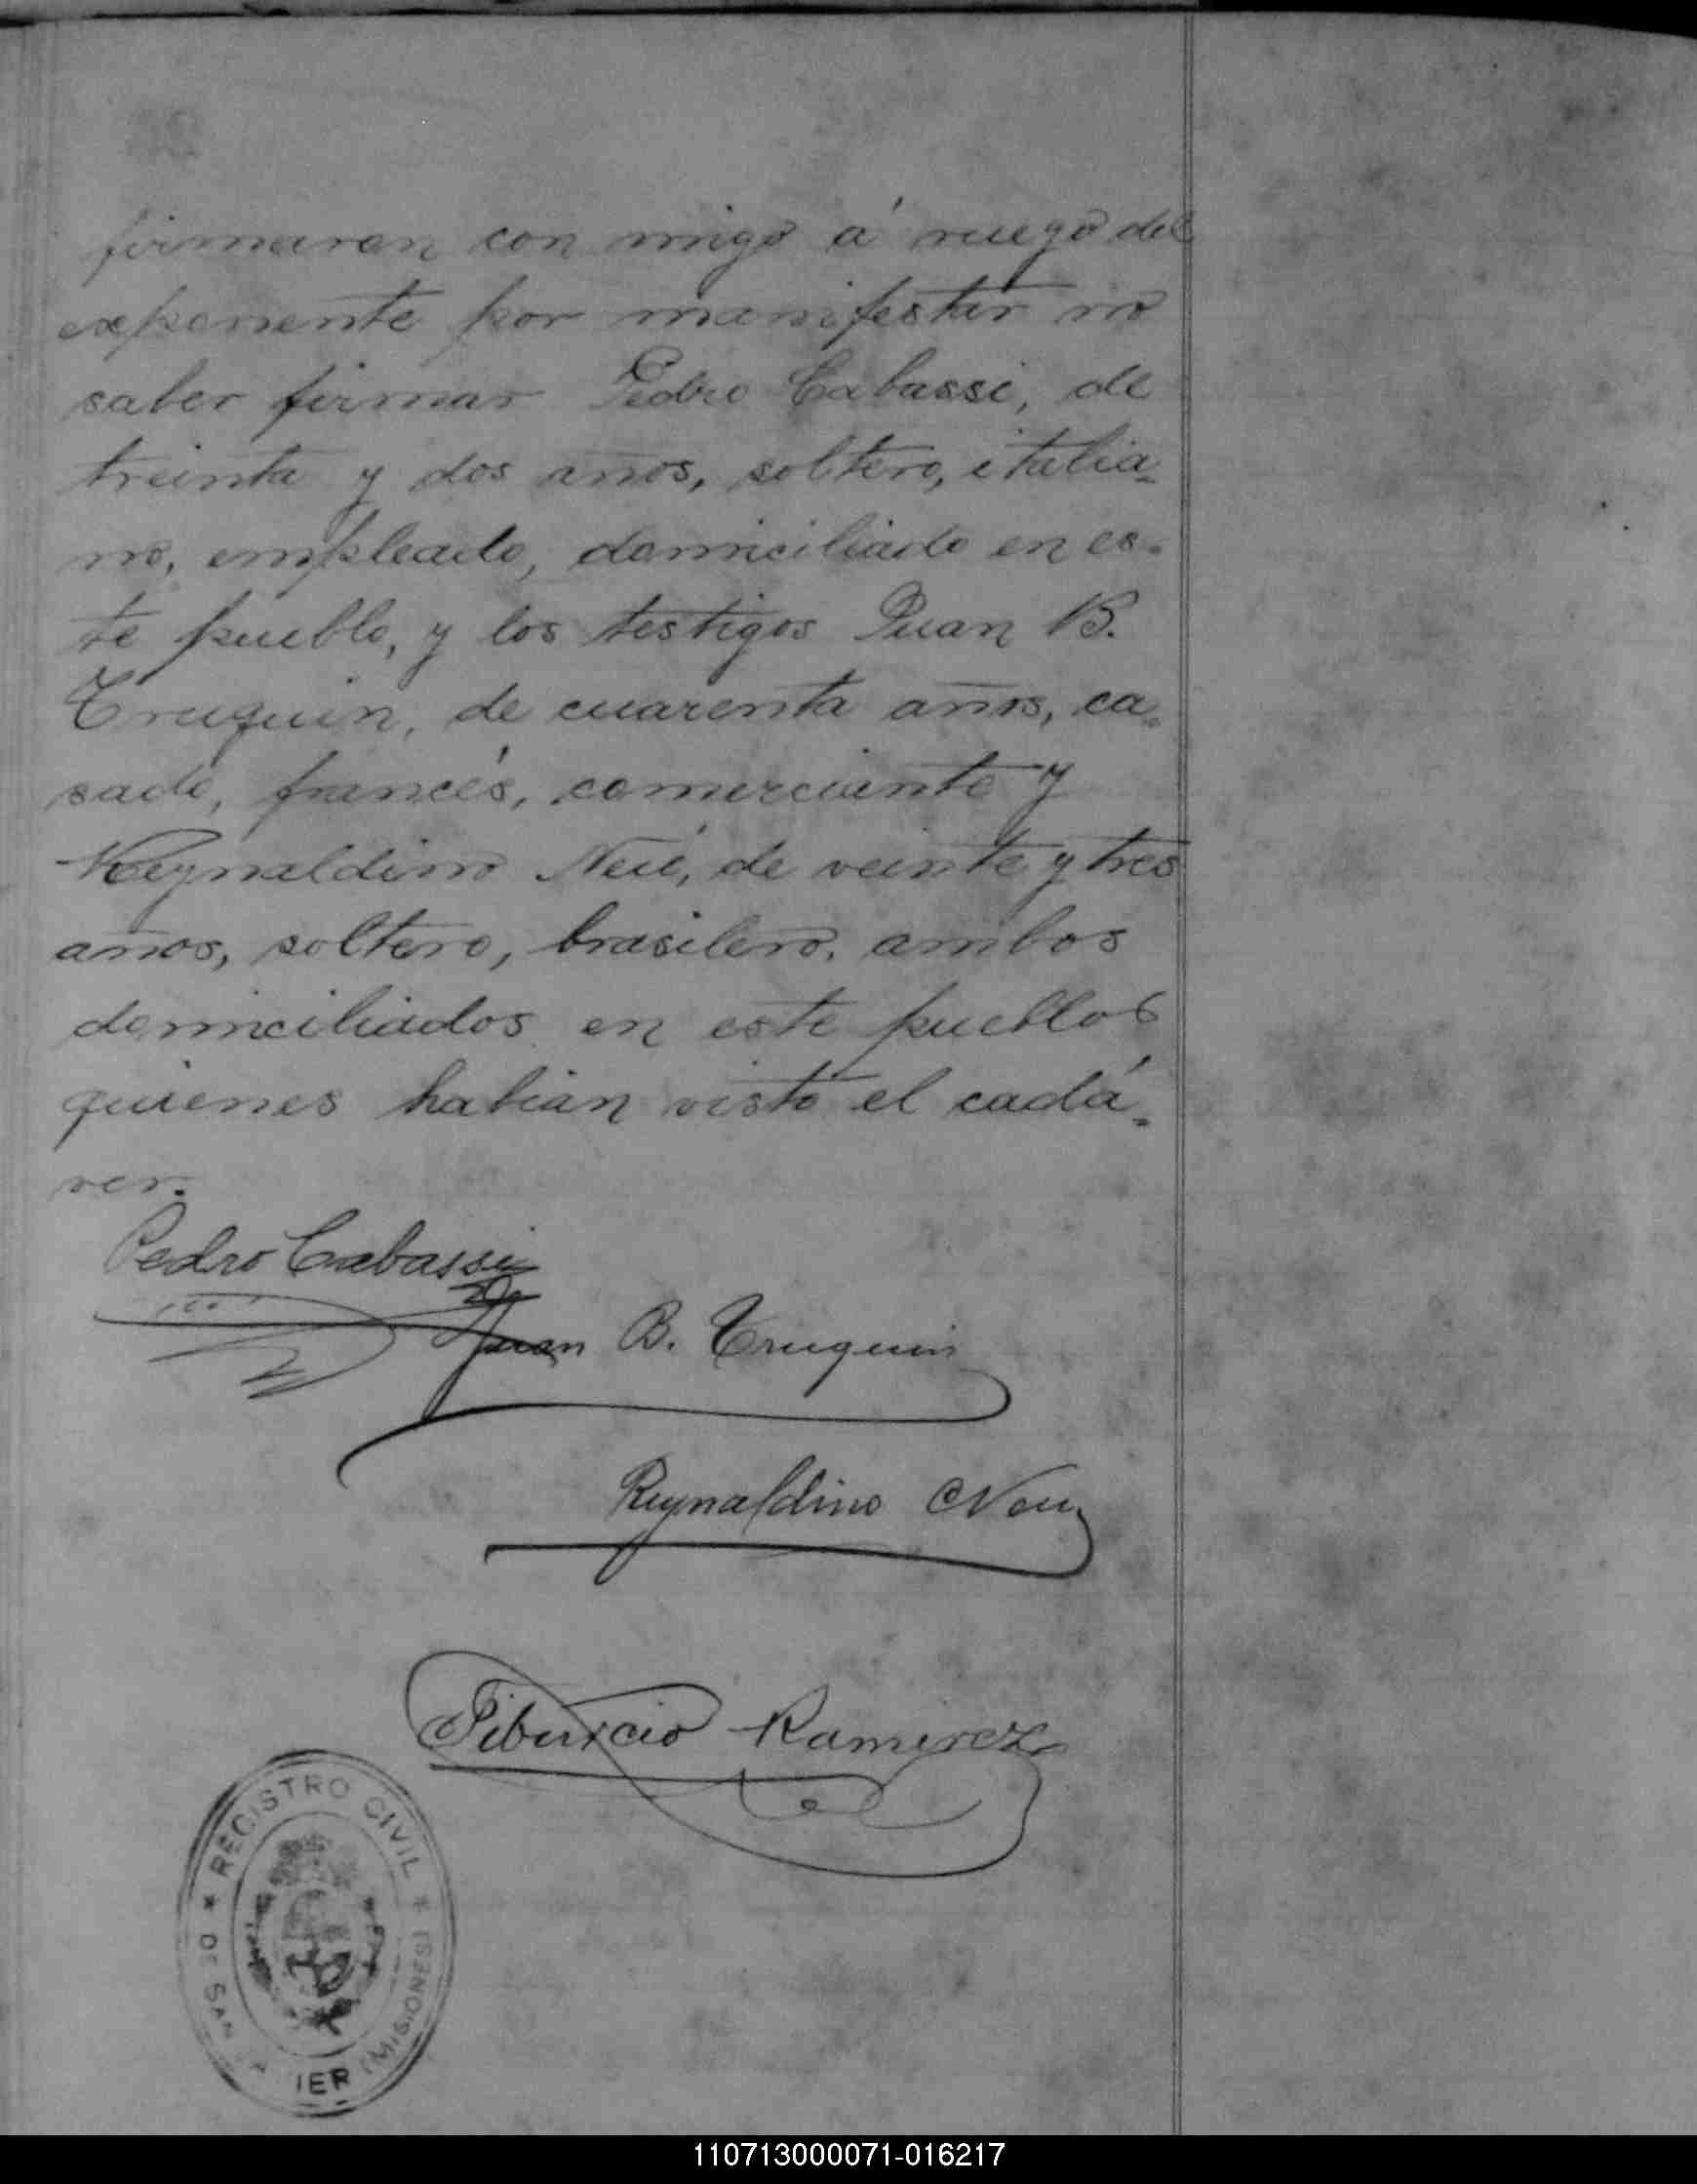 firmaran con migo á ruego del
exponente por manifestar no
saber firmar Pedro Cabassi, de
treinta y dos años, soltero, italia-
no, empleado, domiciliado en es-
te pueblo, y los testigos Juan B.
Truquin, de cuarenta años, ca-
sado, francés, comerciante y
Reynaldino Neú, de veinte y tres
años, soltero, brasilero, ambos
domiciliados en este pueblo
quienes habian visto el cadá-
ver.
Pedro Cabassi
Juan B. Truquin
Reynaldino Neu
Tiburcio Ramirez
REGISTRO CIVIL
DE SAN IER (MISIONES)
110713000071-016217